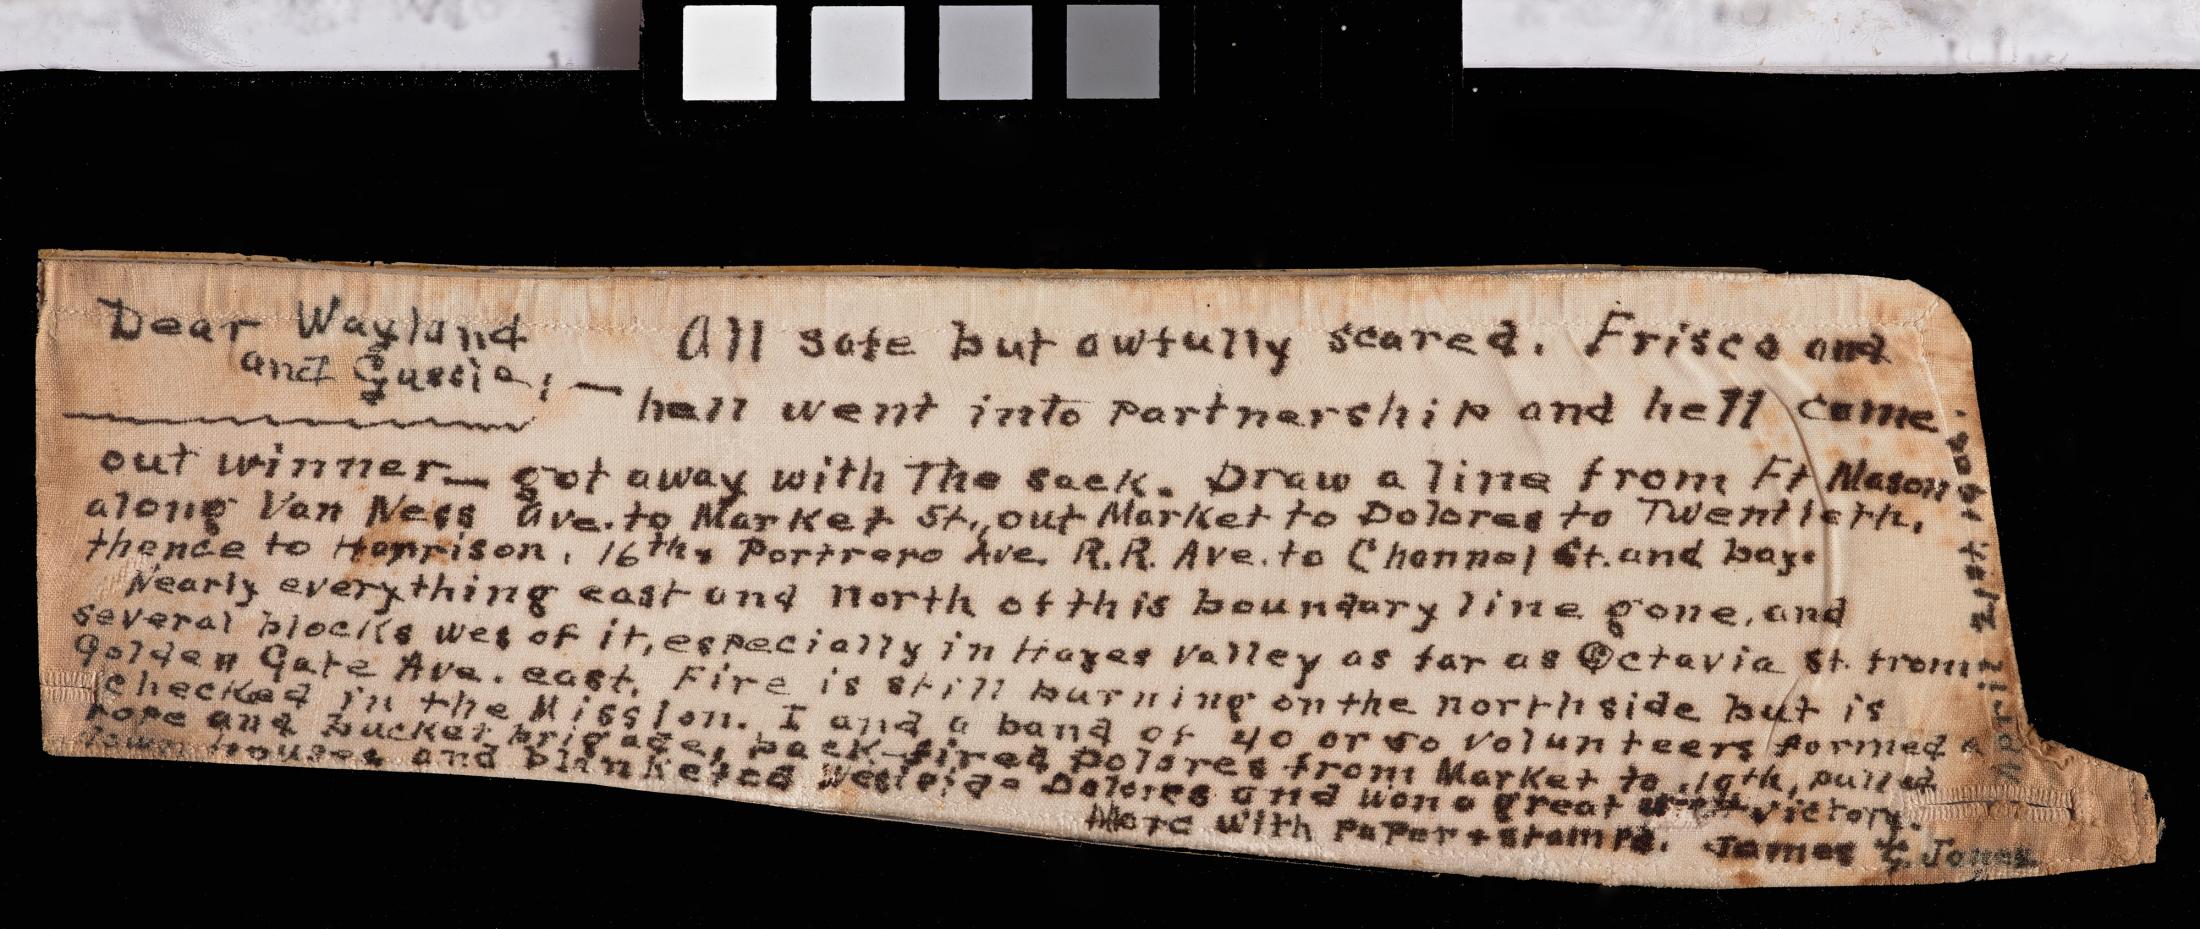 Dear Wayland
and Gussie; —
All safe but awfully scared. Frisco and
hell went into partnership and hell came
out winner — got away with The sack. Draw a line from Ft Mason
along Van Ness Ave. to Market St., out Market to Dolores to Twentieth,
thence to Harrison, 16th, Portrero Ave. R.R. Ave. to Channel St. and bay.
Nearly everything east and north of this boundary line gone, and
several blocks wes of it, especially in Hayes Valley as far as Octavia St. from
Golden Gate Ave. east. Fire is still burning on the north side but is
checked in the Mission. I and a band of 40 or 50 volunteers formed a
rope and bucket brigade, back-fired Dolores from Market to 19th, pulled
down houses and blanketed Westside Dolores and won a great victory.
More with paper + stamps. James G. Jones
April 21st, 1906.